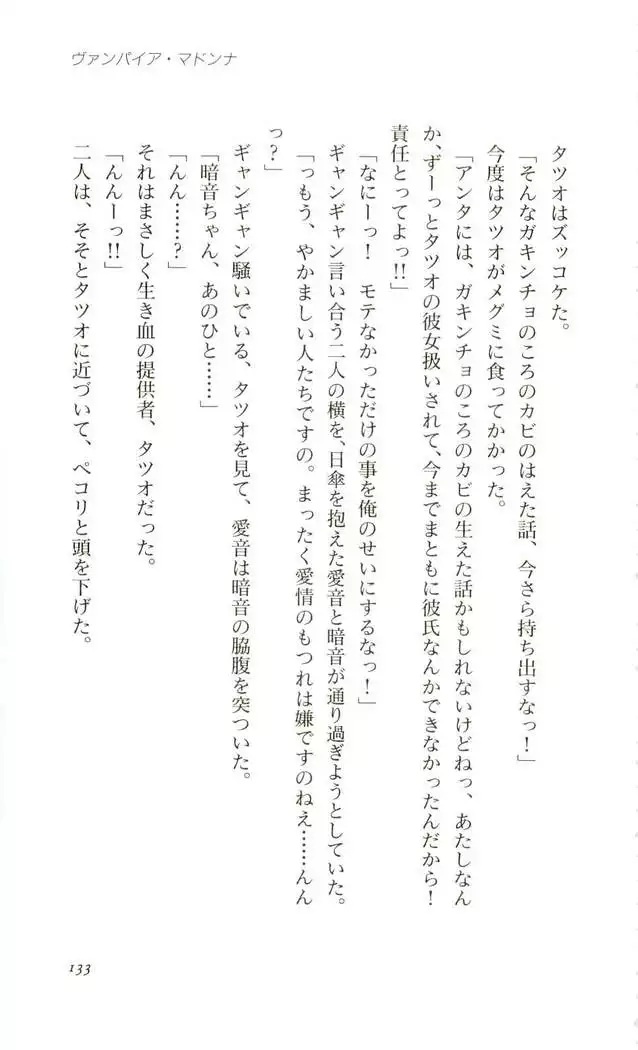 ヴァンパイア・マドンナ
タツオはズッコケた。
「そんなガキンチョのころのカビのはえた話、今さら持ち出すなっ！」
今度はタツオがメグミに食ってかかった。
「アンタには、ガキンチョのころのカビの生えた話かもしれないけどねっ、あたしなん
か、ずーっとタツオの彼女扱いされて、今までまともに彼氏なんかできなかったんだから！
責任とってよっ!!」
「なにーっ！　モテなかっただけの事を俺のせいにするなっ！」
ギャンギャン言い合う二人の横を、日傘を抱えた愛音と暗音が通り過ぎようとしていた。
「っもう、やかましい人たちですの。まったく愛情のもつれは嫌ですのねえ……んん
っ？」
ギャンギャン騒いでいる、タツオを見て、愛音は暗音の脇腹を突ついた。
「暗音ちゃん、あのひと……」
「んん……？」
それはまさしく生き血の提供者、タツオだった。
「んんーっ!!」
二人は、そそとタツオに近づいて、ペコリと頭を下げた。
133